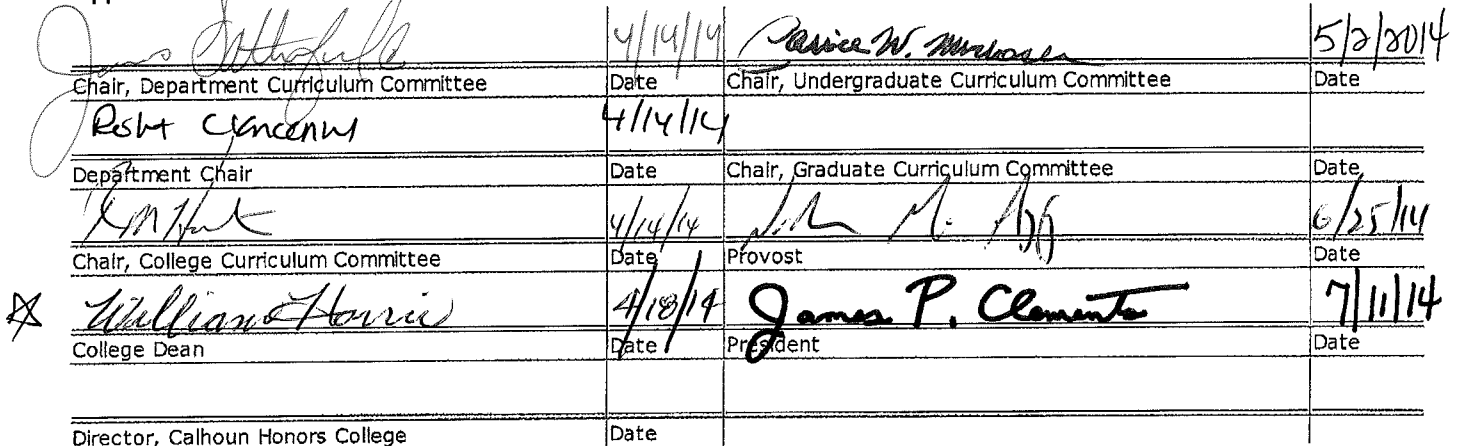 4/14/14 Janice W. 5/2/2014
Chair, Department Curriculum Committee Date Chair, Undergraduate Curriculum Committee Date
4/14/14
Department Chair Date Chair, Graduate Curriculum Committee Date
4/14/14 6/25/14
Chair, College Curriculum Committee Date Provost Date
William Harris 4/18/14 James P. Clements 7/11/14
College Dean Date President Date
Director, Calhoun Honors College Date